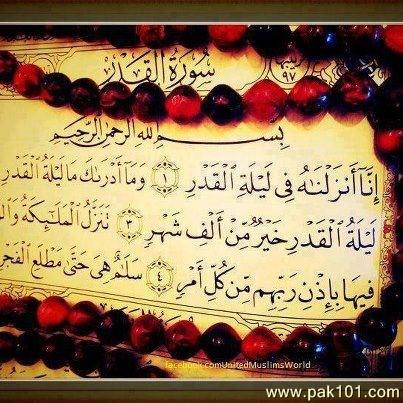 سُورَةُ الْقَدْرِ
٩٧
بِسْمِ اللَّهِ الرَّحْمَٰنِ الرَّحِيمِ
إِنَّا أَنزَلْنَاهُ فِي لَيْلَةِ الْقَدْرِ ١ وَمَا أَدْرَاكَ مَا لَيْلَةُ الْقَدْرِ
لَيْلَةُ الْقَدْرِ خَيْرٌ مِّنْ أَلْفِ شَهْرٍ ٣ تَنَزَّلُ الْمَلَائِكَةُ
فِيهَا بِإِذْنِ رَبِّهِم مِّن كُلِّ أَمْرٍ ٤ سَلَامٌ هِيَ حَتَّىٰ مَطْلَعِ الْفَجْرِ
facebook.comUnitedMuslimsWorld
www.pak101.com